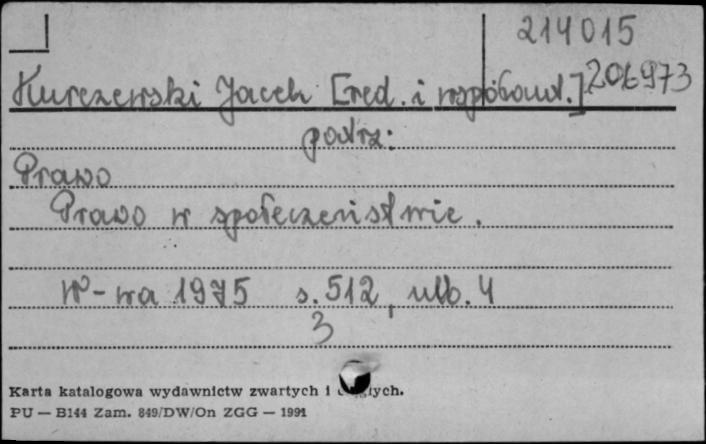 214015
Kurczewski Jacek [red. i współaut.] 206973
patrz:
Prawo
Prawo w społeczeństwie.
W-wa 1975 s. 512, nlb. 4
3
Karta katalogowa wydawnictw zwartych i
PU — B144 Zam. 849/DW/On ZGG — 1991